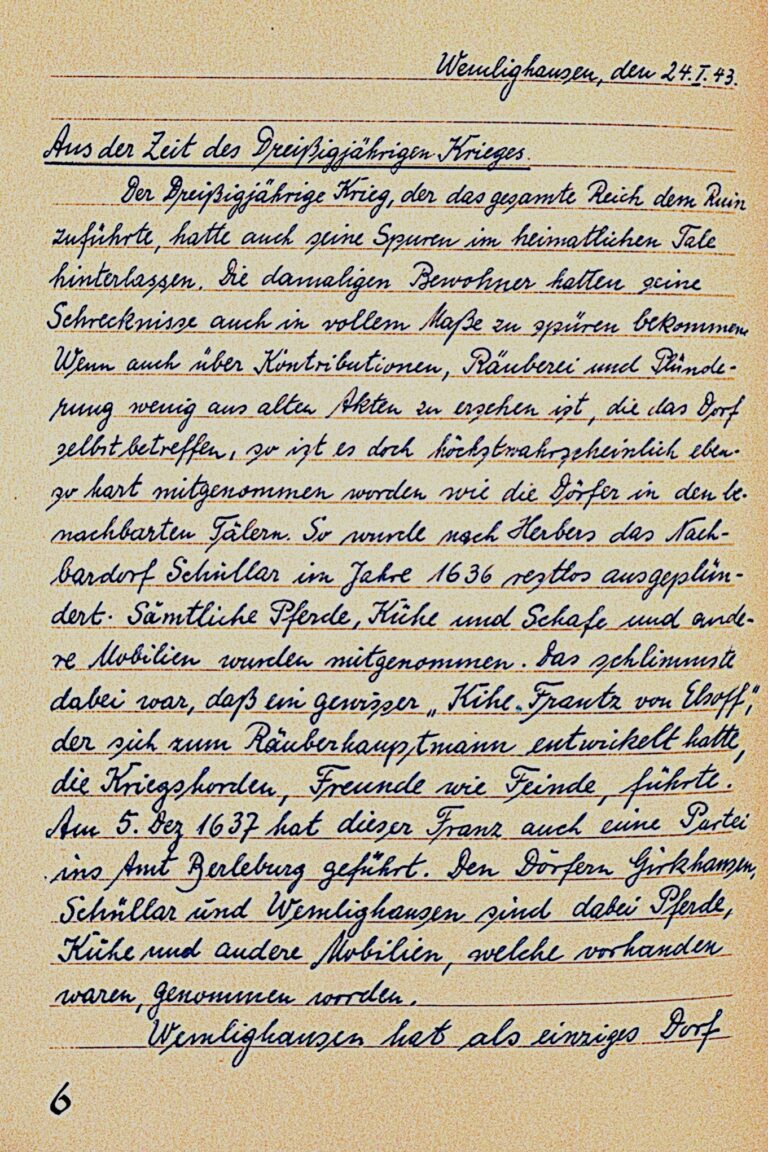 Wemlighausen, den 24.I.43.
Aus der Zeit des Dreißigjährigen Krieges.
Der Dreißigjährige Krieg, der das gesamte Reich dem Ruin
zuführte, hatte auch seine Spuren im heimatlichen Tale
hinterlassen. Die damaligen Bewohner hatten seine
Schrecknisse auch in vollem Maße zu spüren bekommen.
Wenn auch über Kontributionen, Räuberei und Plünde-
rung wenig aus alten Akten zu ersehen ist, die das Dorf
selbst betreffen, so ist es doch höchstwahrscheinlich eben-
so hart mitgenommen worden wie die Dörfer in den be-
nachbarten Tälern. So wurde nach Herbers das Nach-
bardorf Schüllar im Jahre 1636 restlos ausgeplün-
dert. Sämtliche Pferde, Kühe und Schafe und ande-
re Mobilien wurden mitgenommen. Das schlimmste
dabei war, daß ein gewisser „Kihe-Frantz von Elsoff",
der sich zum Räuberhauptmann entwickelt hatte,
die Kriegshorden, Freunde wie Feinde, führte.
Am 5. Dez 1637 hat dieser Franz auch eine Partei
ins Amt Berleburg geführt. Den Dörfern Girkhausen,
Schüllar und Wemlighausen sind dabei Pferde,
Kühe und andere Mobilien, welche vorhanden
waren, genommen worden.
Wemlighausen hat als einziges Dorf
6